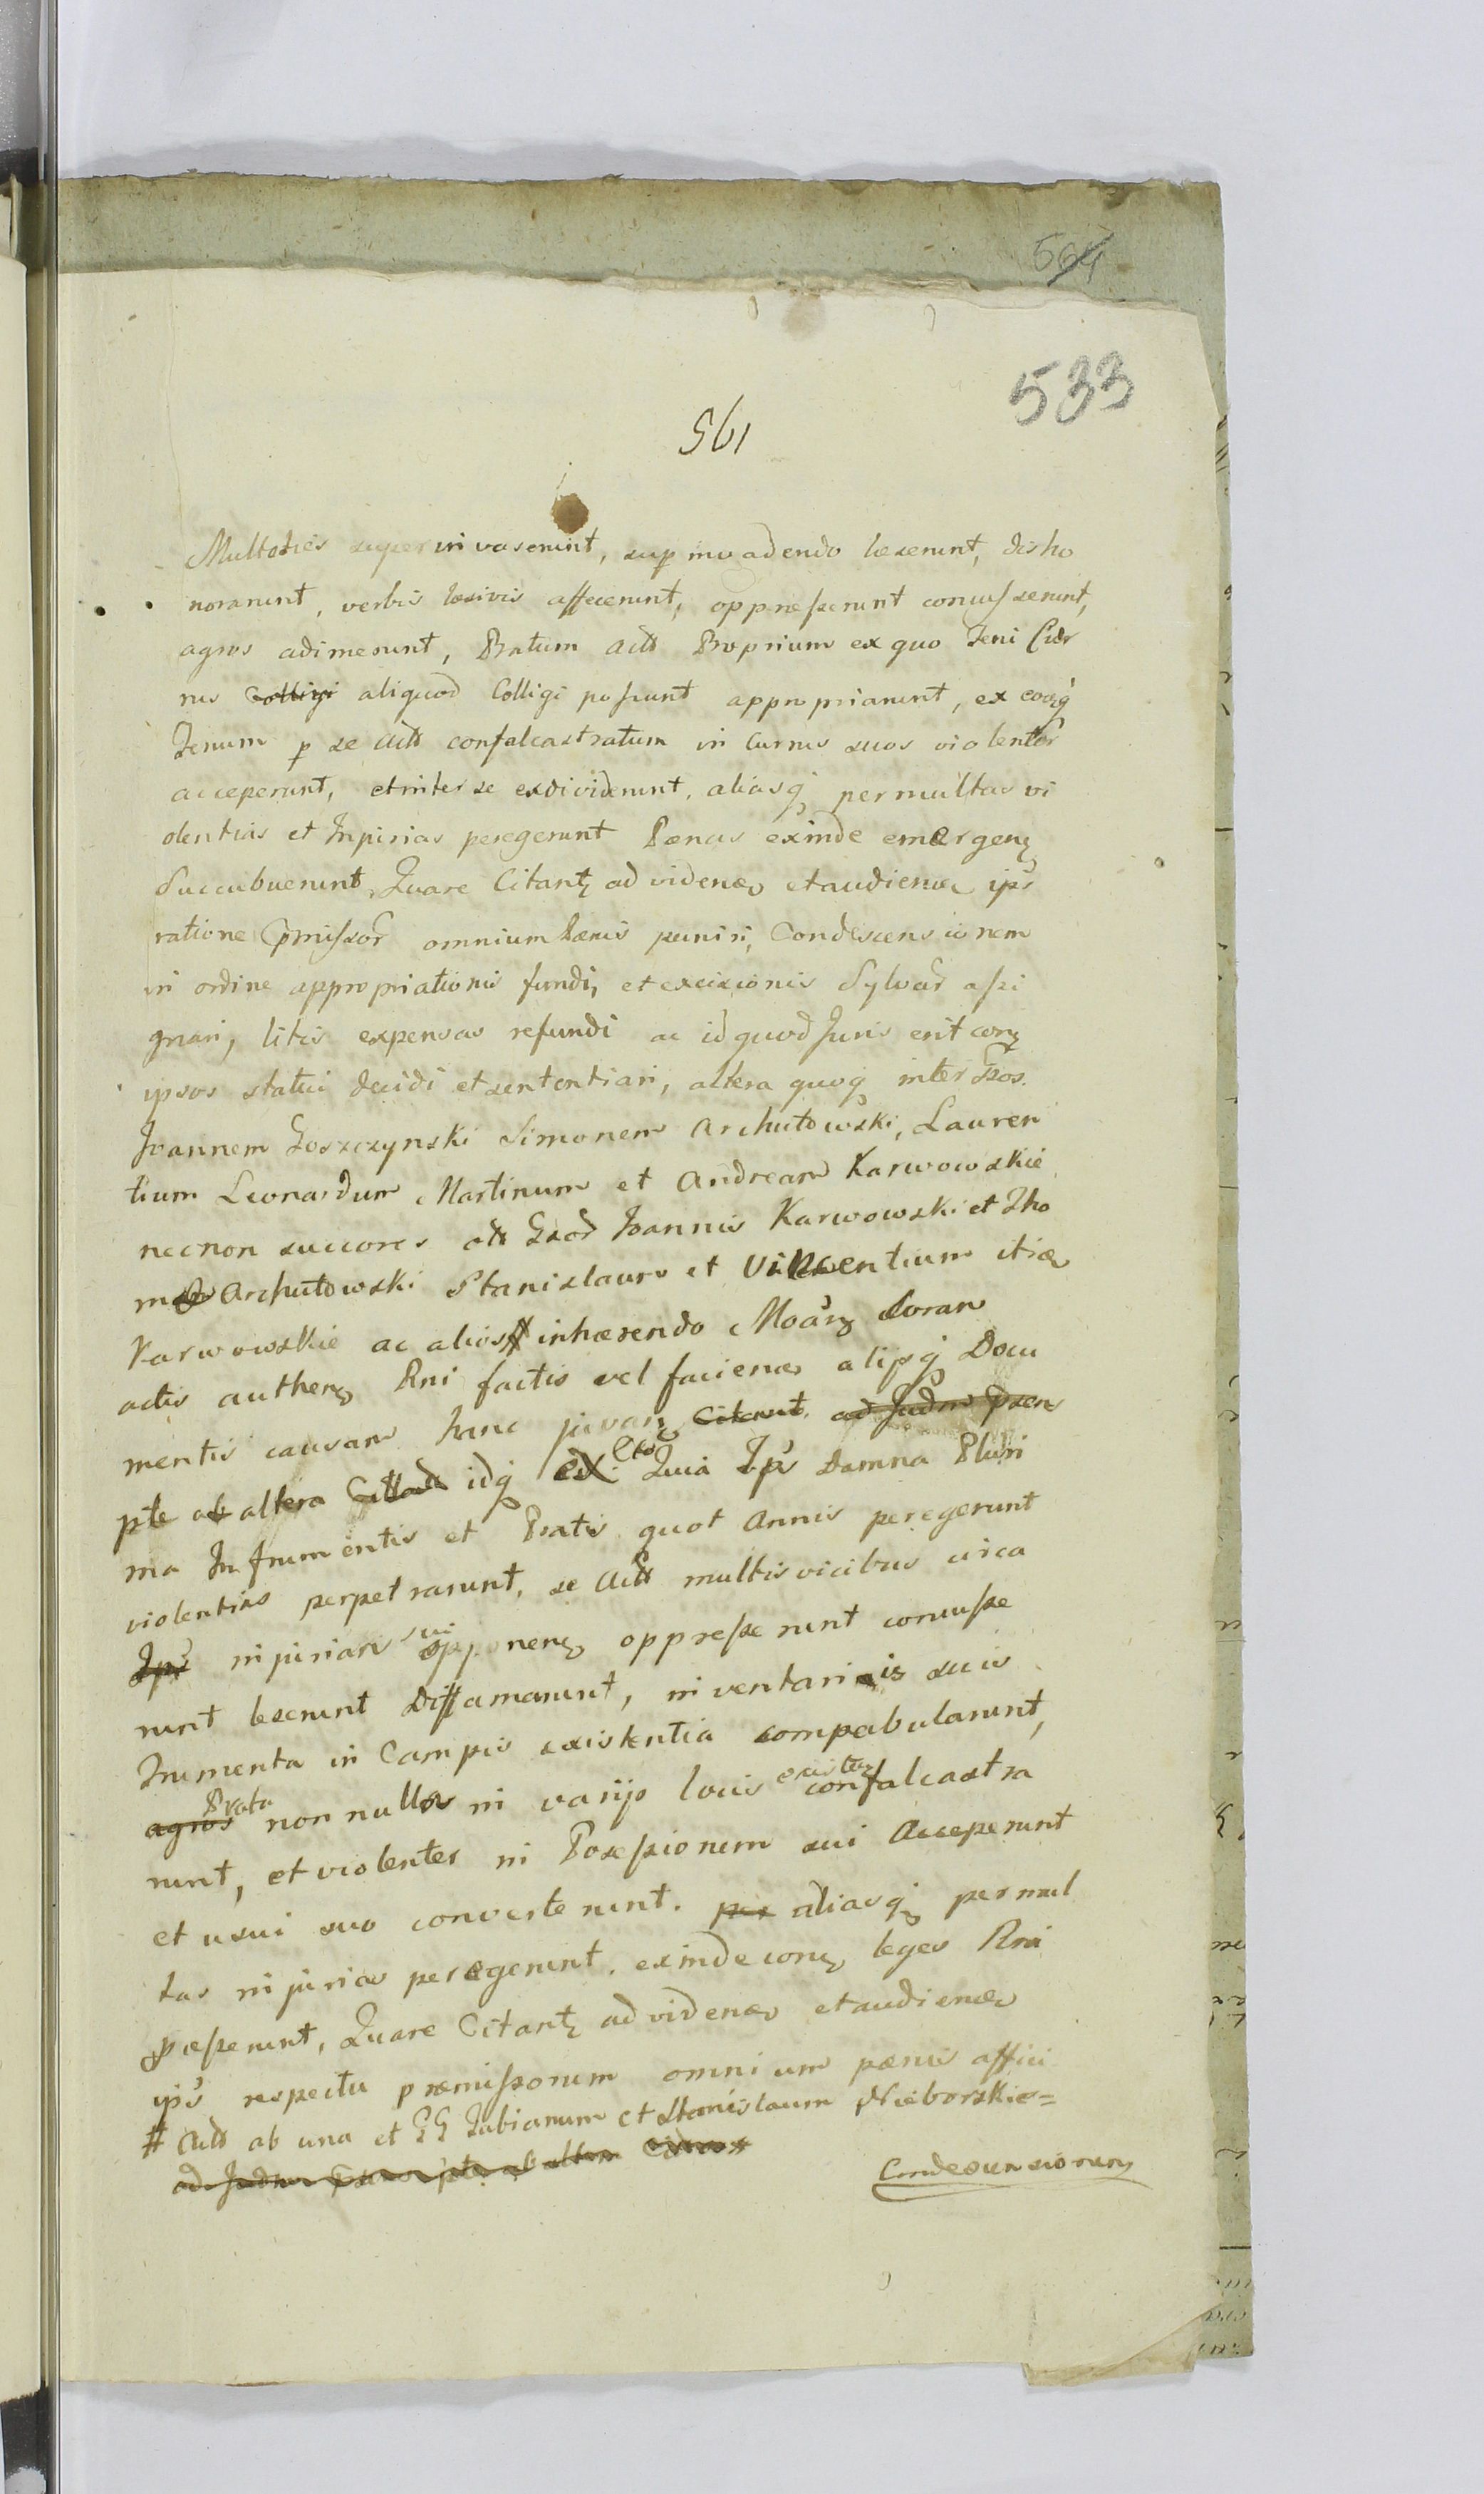 564
533
561
Multoties superinvaserunt, sup invadendo læserunt, disho
norarunt, verbis læsivis affecerunt, oppresserunt concusserunt,
agros adimerunt, Pratum Actt Proprium ex quo feni Curr
rus Colligi aliquod Colligi possunt appropriarunt, ex eoq
fenum p se Actt confalcastratum in Currus suos violenter
acceperunt, et inter se exdiviserunt, aliasq permultas vi
olentias et Injurias peregerunt Pænas exinde emergen
Succubuerunt, Quare Citant ad vidend et audiend ips
ratione præmissor omnium Pænis puniri, Condescensionem
in ordine appropriationis fundi, et excisionis Sylvar assi
gnari, litis expensas refundi ac id quod Juris erit con
ipsos statui decidi et sententiari, altera quoq inter Gsos
Joannem Goszczynski Simonem Archutowski, Lauren
tium Leonardum Martinum et Andream Karwowskie
necnon succores ott Gsor Joannis Karwowski et Tho
mæ Archutowski Stanislaum et Vincentium itid
Karwowskie ac alios # inhærendo Moan coran
actis authen Rni factis vel faciend alijsq Docu
mentis causam hanc juvan Citarunt ad Judm Præsen
pte ab altera Cittos idq ex Eo Quia Ips Damna Pluri
ma In frumentis et Pratis quot Annis peregerunt
violentias perpetrarunt, se Actt multis vicibus circa
Ips injuriam sui opponen oppresserunt concusse
runt leserunt Diffamarunt, inventariis suis
frumenta in Campis existentia compabularunt,
agros Prata nonnulla in varijs locis existen confalcastra
runt, et violenter in Possessionem sui Acceperunt
et usui suo converterunt. per aliasq permul
tas injurias peregerunt. exinde con leges Rni
præsserunt, Quare Citant ad vidend et audiend
ips respectu præmissorum omnium pænis affici
# Actt ab una et GG Fabianum et Stanislaum Nieborskie=
ad Judm pte ab altera Cittos
Condescensionem